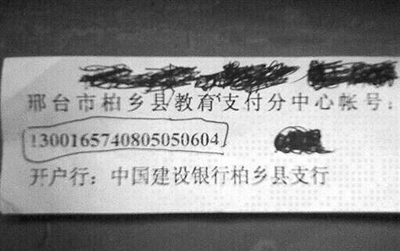 邢台市柏乡县教育支付分中心帐号:
13001657408050506​04
开户行:中国建设银行柏乡县支行